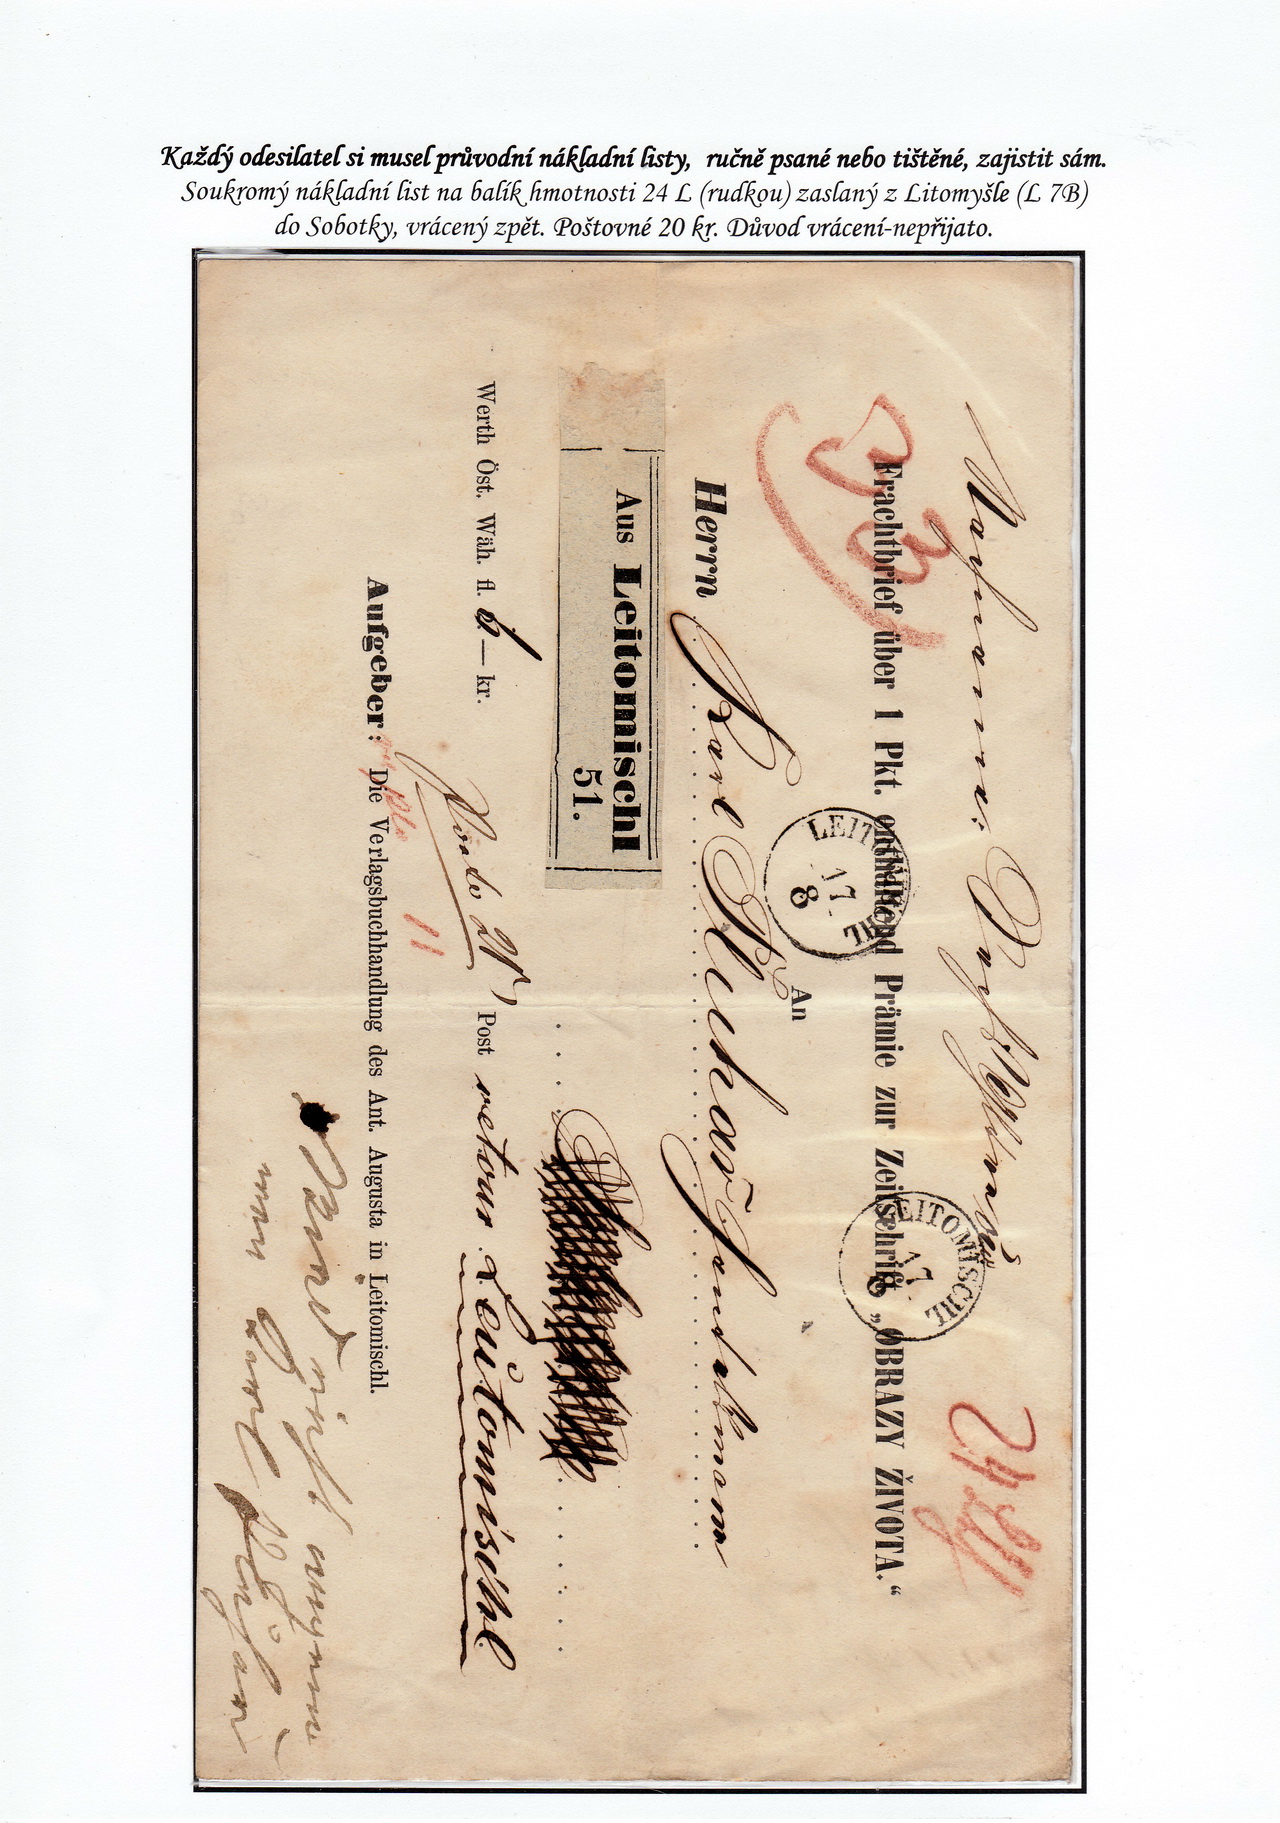 Každý odesilatel si musel průvodní nákladní listy, ručně psané nebo tištěné, zajistit sám.
Soukromý nákladní list na balík hmotnosti 24 L (rudkou) zaslaný z Litomyšle (L 7B)
do Sobotky, vrácený zpět. Poštovné 20 kr. Důvod vrácení-nepřijato.
Frachtbrief über 1 Pkt. enthaltend Prämie zur Zeitschrift „OBRAZY ŽIVOTA.“
LEITOMISCHL
17
8
LEITOMISCHL
17
8
An
Herrn Karl
Aus Leitomischl
51.
Werth Öst. Wäh. fl. 6 — kr.
Post retour Leitomischl
Aufgeber: Die Verlagsbuchhandlung des Ant. Augusta in Leitomischl.
11
Wird nicht